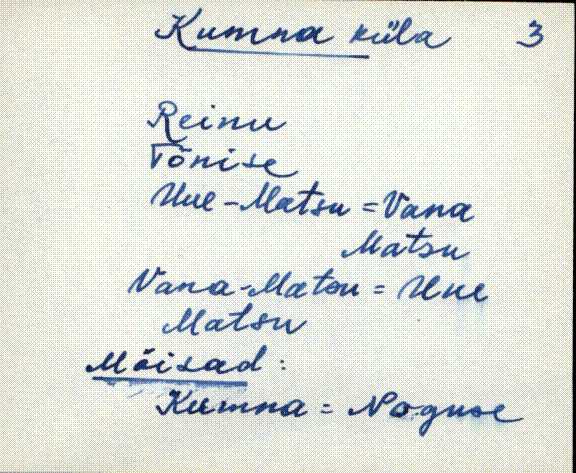 Kumna küla 3
Reinu
Tõnise
Uue-Matsu = Vana
Matsu
Vana-Matsu = Uue
Matsu
Mõisad:
Kumna =